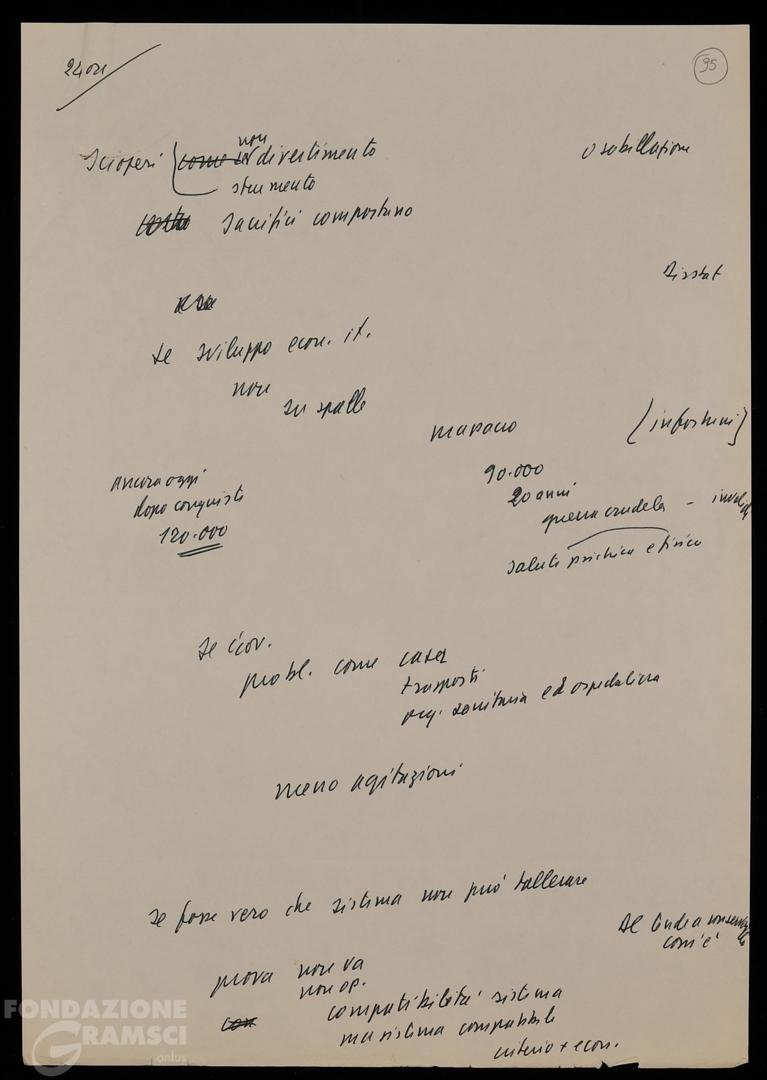 24 ore
95
Scioperi non
come divertimento o sobillazione
strumento
sacrifici comportano
Disstat
se sviluppo econ. it.
non
su spalle
manano (infortuni)
Ancora oggi 90.000
dopo conquiste 20 anni
120.000 guerra crudele - invalidi
salute psichica e fisica
se
probl. come casa
trasporti
org. sanitaria ed ospedaliera
meno agitazioni
se fosse vero che sistema non può tollerare
com'è
prova non va
non op.
compatibilità sistema
ma sistema compatibile
criterio + econ.
FONDAZIONE
GRAMSCI
onlus